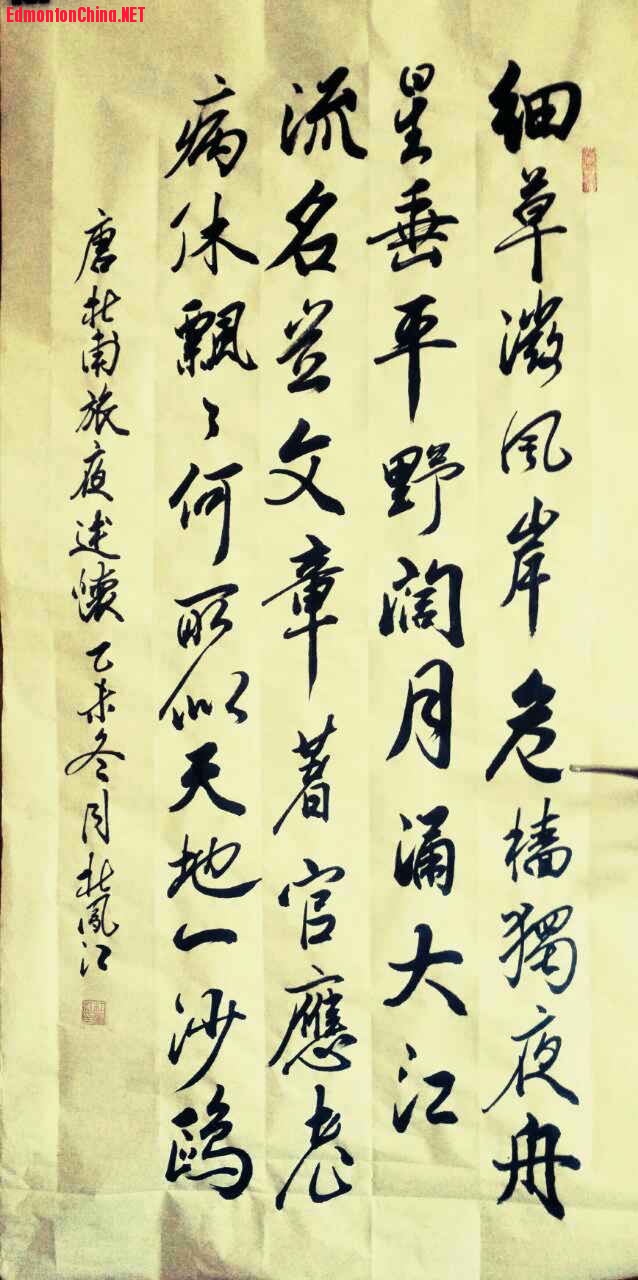 EdmontonChina.NET
细草微风岸危樯獨夜舟
星垂平野阔月涌大江
流名岂文章著官應老
病休飘々何所似天地一沙鸥
唐杜甫旅夜述懷乙未冬月杜鳳江